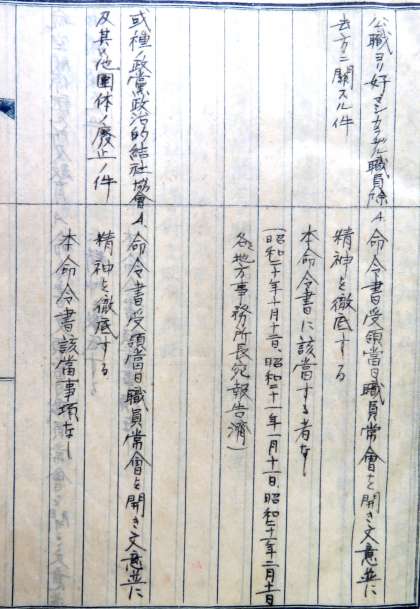 公職ヨリ好マシカラザル職員除
去方ニ關スル件
A、命令書受領當日職員常會を開き文意並に
精神を徹底する
本命令書に該當する者なし
(昭和二十年十月十二日、昭和二十一年一月十一日、昭和二十一年二月十一日
各地方事務所長宛報告濟)
或種ノ政黨政治的結社協會
及其ノ他團体ノ廢止ノ件
A、命令書受領當日職員常會を開き文意並に
精神を徹底する
本命令書該當事項なし